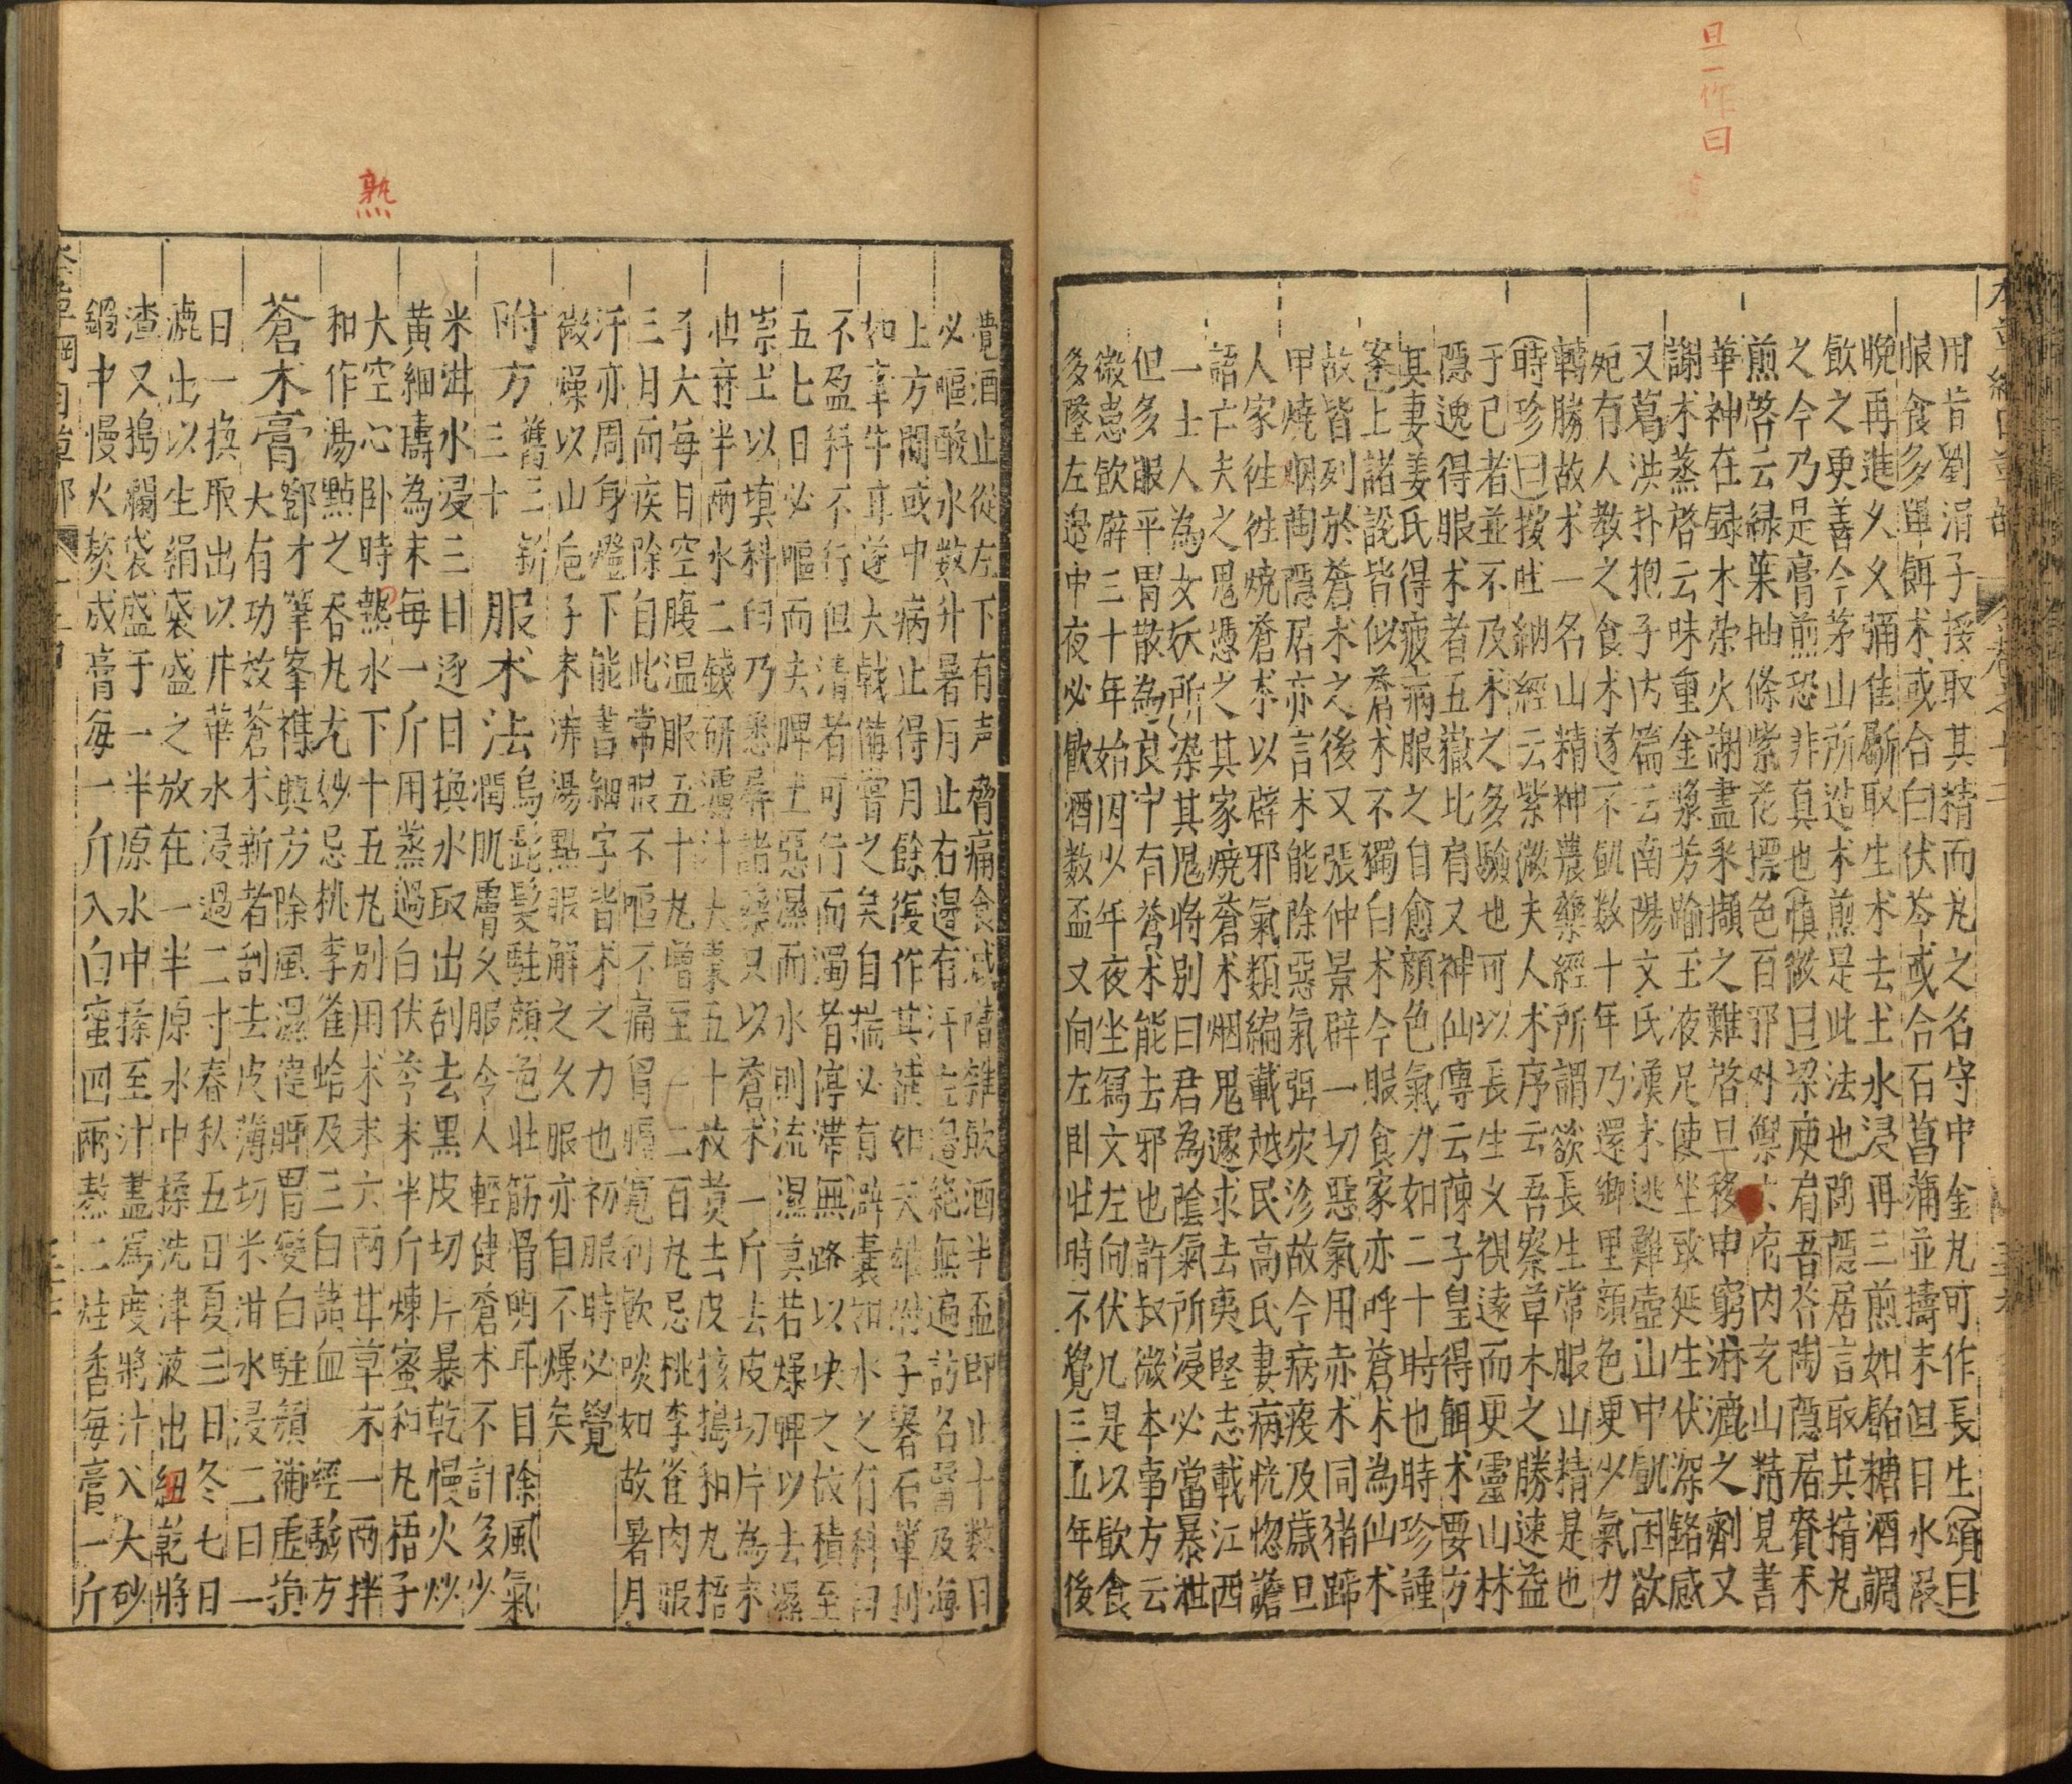 旦一作曰
用昔劉涓子挼取其精而丸之名守中金丸可作長生頌曰
服食多單餌术或合白伏苓或合石菖蒲並擣末但日水服
晚再進久久彌佳斸取生术去土水浸再三煎如飴糖酒調
飲之更善今茅山所造术煎是此法也陶隱居言取其精丸
之今乃是膏煎恐非真也慎微曰梁庾肩吾荅陶隱居賚术
煎啓云綠葉抽條紫花摽色百邪外禦六府内充山精見書
華神在録木榮火謝盡采擷之難啓旦移申窮淋漉之劑又
謝术蒸啓云味重金漿芳踰玉液足使坐致延生伏深銘感
又葛洪抱扑子内篇云南陽文氏漢末逃難壺山中飢困欲
死有人教之食术遂不飢数十年乃還鄉里顔色更少氣力
轉勝故术一名山精神農藥經所謂欲長生常服山精是也
時珍曰按吐納經云紫微夫人术序云吾察草木之勝速益
于已者並不及术之多驗也可以長生久視遠而更靈山林
隱逸得服术者五嶽比肩又神仙傳云陳子皇得餌术要方
其妻姜氏得疲病服之自愈顔色氣力如二十時也時珍謹
案已上諸說皆似蒼术不獨白术今服食家亦呼蒼术為仙术
故皆列於蒼术之後又張仲景辟一切惡氣用赤术同猪蹄
甲燒烟陶隱居亦言术能除惡氣弭灾沴故今病疫及歲旦
人家徃徃燒蒼术以辟邪氣類編載越民高氏妻病恍惚譫
語亡夫之鬼憑之其家燒蒼术烟鬼遽求去夷堅志載江西
一士人為女妖所染其鬼將别曰君為陰氣所浸必當暴泄
但多服平胃散為良中有蒼术能去邪也許叔微本事方云
微患飲癖三十年始因少年夜坐寫文左向伏几是以飲食
多墜左邊中夜必飲酒数盃又向左卧壯時不覺三五年後
覺酒止從左下有声脅痛食减嘈雜飲酒半盃即止十數日
必嘔酸水数升暑月止右邊有汗左邊絶無遍訪名醫及海
上方間或中病止得月餘復作其補如天雄附子礬石輩利
如牽牛甘遂大戟備嘗之矣自揣必有澼囊如水之有科臼
不盈科不行但清者可行而濁者停滯無路以决之故積至
五七日必嘔而去脾土惡濕而水則流濕莫若燥脾以去濕
崇土以填科臼乃悉屏諸藥只以蒼术一斤去皮切片為末
也蔴半兩水二錢研濾汁大棗五十枚黄去皮核搗和丸梧
子大每日空腹温服五十丸增至一二百丸忌桃李雀肉服
三月而疾除自此常服不嘔不痛胃膈寛利飲啖如故暑月
汗亦周身燈下能書細字皆术之力也初服時必覺
微燥以山巵子末沸湯點服解之久服亦自不燥矣
附方舊三新三十 服术法 烏髭髮駐顔色壯筋骨明耳目除風氣潤肌膚久服令人輕健蒼术不計多少
米泔水浸三日逐日換水取出刮去黑皮切片暴乾慢火炒
黄細擣為末每一斤用蒸過白伏苓末半斤煉蜜和丸梧子
大空心卧時熱水下十五丸别用术末六兩甘草末一兩拌
和作湯點之吞丸尤妙忌桃李雀蛤及三白諸血 經驗方
蒼木膏 鄧才筆峯襍興方除風濕健脾胃變白駐顔補虚損大有功效蒼术新者刮去皮薄切米泔水浸二日一
日一換取出以井華水浸過二寸春秋五日夏三日冬七日
漉出以生絹袋盛之放在一半原水中揉洗津液出紐乾將
渣又搗爛袋盛于一半原水中揉至汁盡爲度將汁入大砂
鍋中慢火熬成膏每一斤入白蜜四兩熬二炷香每膏一斤
熟